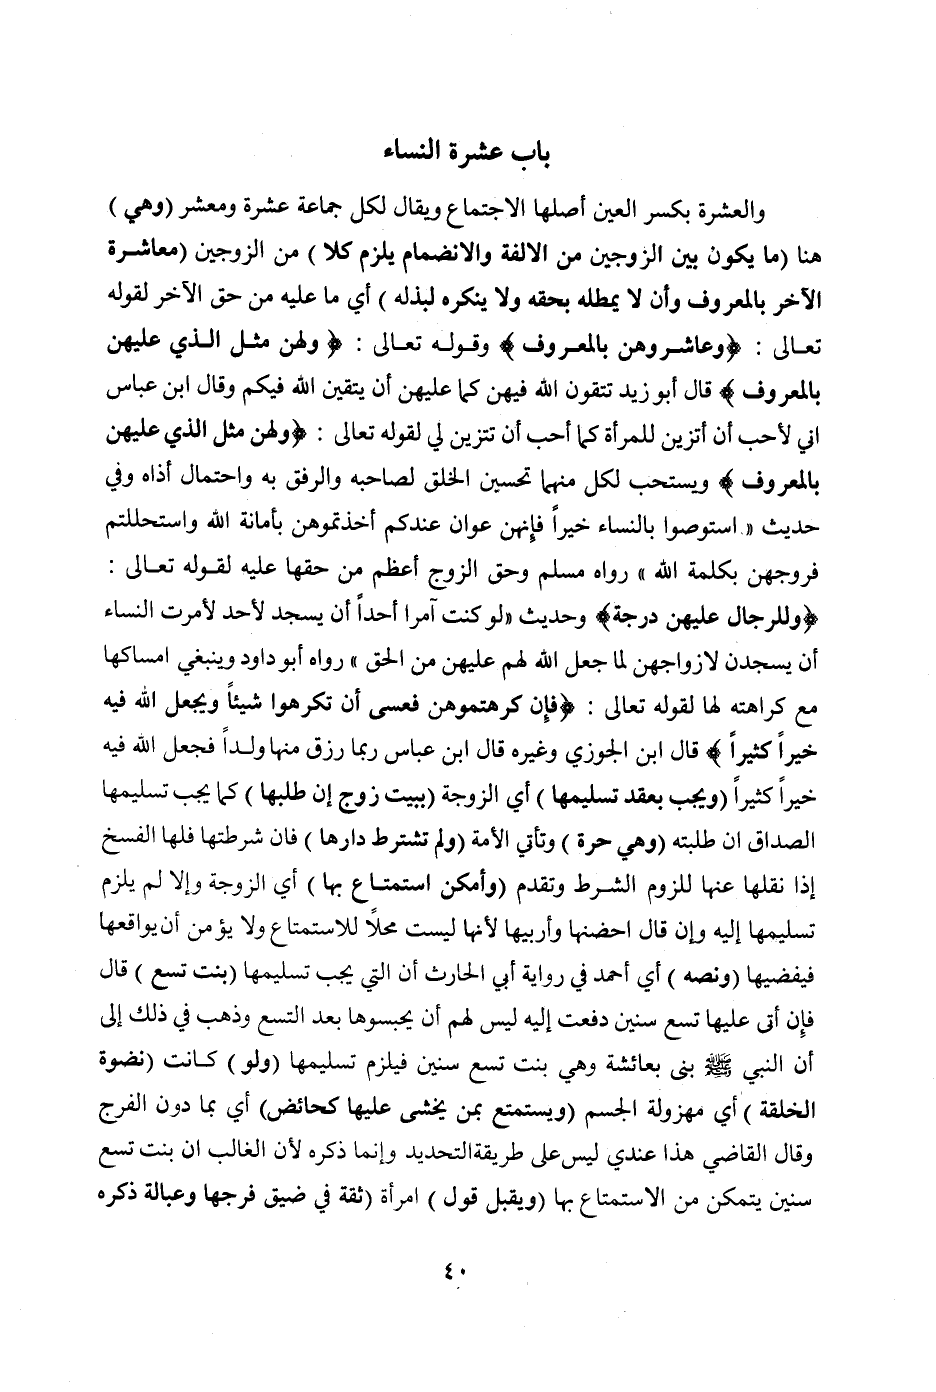 باب عشرة النساء
والعشرة بكسر العين أصلها الاجتماع ويقال لكل جماعة عشرة ومعشر (وهي )
هنا (ما يكون بين الزوجين من الالفة والانضمام يلزم كلا ) من الزوجين (معاشرة
الآخر بالمعروف وأن لا يمطله بحقه ولا ينكره لبذله ) أي ما عليه من حق الآخر لقوله
تعـالى : ﴿وعاشـروهن بالمعـروف ﴾ وقولـه تعـالى : ﴿ ولهن مثـل الـذي عليهن
بالمعروف ﴾ قال أبو زيد تتقون الله فيهن كما عليهن أن يتقين الله فيكم وقال ابن عباس
اني لأحب أن أتزين للمرأة كما أحب أن تتزين لي لقوله تعالى : ﴿ولهن مثل الذي عليهن
بالمعروف ﴾ ويستحب لكل منهما تحسين الخلق لصاحبه والرفق به واحتمال أذاه وفي
حديث « استوصوا بالنساء خيراً فإنهن عوان عندكم أخذتموهن بأمانة الله واستحللتم
فروجهن بكلمة الله » رواه مسلم وحق الزوج أعظم من حقها عليه لقـوله تعـالى :
﴿وللرجال عليهن درجة﴾ وحديث «لو كنت آمرا أحداً أن يسجد لأحد لأمرت النساء
أن يسجدن لازواجهن لما جعل الله لهم عليهن من الحق » رواه أبو داود وينبغي امساكها
مع كراهته لها لقوله تعالى : ﴿فإن كرهتموهن فعسى أن تكرهوا شيئاً ويجعل الله فيه
خيراً كثيراً ﴾ قال ابن الجوزي وغيره قال ابن عباس ربما رزق منها ولـداً فجعل الله فيه
خيراً كثيراً (ويجب بعقد تسليمها ) أي الزوجة (ببيت زوج إن طلبها ) كما يجب تسليمها
الصداق ان طلبته (وهي حرة ) وتأتي الأمة (ولم تشترط دارها ) فان شرطتها فلها الفسخ
إذا نقلها عنها للزوم الشرط وتقدم (وأمكن استمتـاع بها ) أي الزوجة وإلا لم يلزم
تسليمها إليه وإن قال احضنها وأربيها لأنها ليست محلاً للاستمتاع ولا يؤمن أن يواقعها
فيفضيها (ونصه ) أي أحمد في رواية أبي الحارث أن التي يجب تسليمها (بنت تسع ) قال
فإن أتى عليها تسع سنين دفعت إليه ليس لهم أن يحبسوها بعد التسع وذهب في ذلك إلى
أن النبي ﷺ بنى بعائشة وهي بنت تسع سنين فيلزم تسليمها (ولو ) كـانت (نضوة
الخلقة ) أي مهزولة الجسم (ويستمتع بمن يخشى عليها كحائض) أي بما دون الفرج
وقال القاضي هذا عندي ليس على طريقةالتحديد وإنما ذكره لأن الغالب ان بنت تسع
سنين يتمكن من الاستمتاع بها (ويقبل قول ) امرأة (ثقة في ضيق فرجها وعبالة ذكره
٤٠